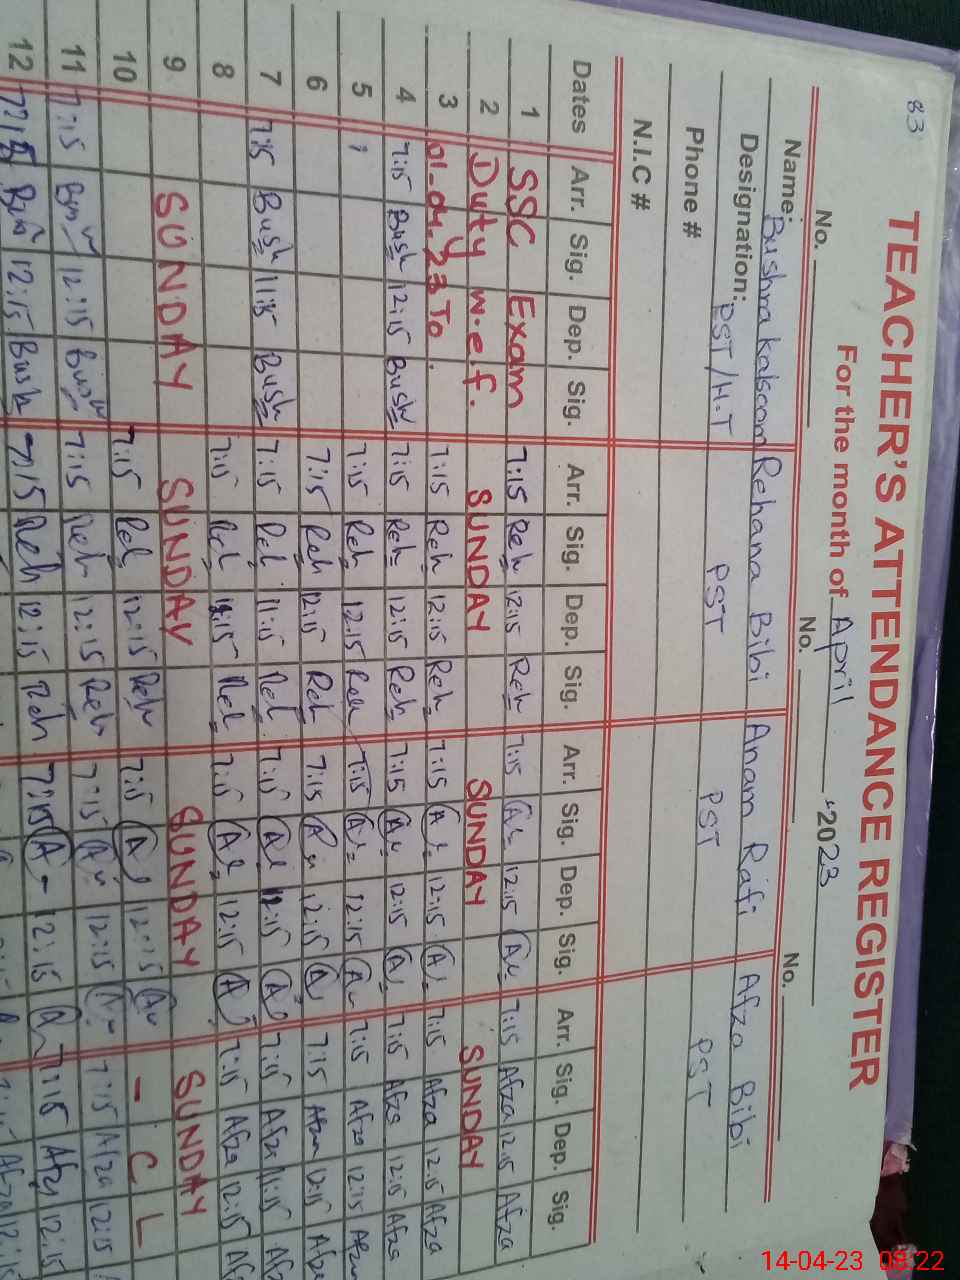 83
TEACHER'S ATTENDANCE REGISTER
For the month of April 2023
No. No. No.
Name: Bushra Kalsoom Rehana Bibi Anam Rafi Afza Bibi
Designation: PST/H.T PST PST PST
Phone #
N.I.C #
Dates Arr. Sig. Dep. Sig. Arr. Sig. Dep. Sig. Arr. Sig. Dep. Sig. Arr. Sig. Dep. Sig.
1 SSC Exam 7:15 Reh 12:15 Reh 7:15 12:15 7:15 Afza 12:15 Afza
2 Duty w.e.f. SUNDAY SUNDAY SUNDAY
3 01-04-23 To. 7:15 Reh 12:15 Reh 7:15 12:15 7:15 Afza 12:15 Afza
4 7:15 Bush 12:15 Bush 7:15 Reh 12:15 Reh 7:15 12:15 7:15 Afza 12:15 Afza
5 7:15 Reh 12:15 Reh 7:15 12:15 7:15 Afza 12:15
6 7:15 Reh 12:15 Reh 7:15 12:15 7:15 12:15
7 7:15 Bush 11:15 Bush 7:15 Reh 11:15 Reh 7:15 7:15 Afza 11:15
8 7:15 Reh 12:15 Reh 7:15 12:15 7:15 Afza 12:15
9 SUNDAY SUNDAY SUNDAY SUNDAY
10 7:15 Reh 12:15 Reh 7:15 12:15 - C L
11 7:15 Bush 12:15 Bush 7:15 Reh 12:15 Reh 7:15 12:15 7:15 Afza 12:15
12 Bush 12:15 Bush 7:15 Reh 12:15 Reh 7:15 12:15 7:15 Afza 12:15
14-04-23 08:22